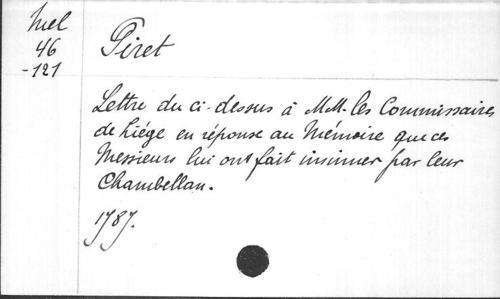 Mel
46
-121
Piret
Lettre du ci-dessus à M.M. les Commissaires
de Liége en réponse au Mémoire que ces
Messieurs lui ont fait insinuer par leur
Chambellan.
1787.